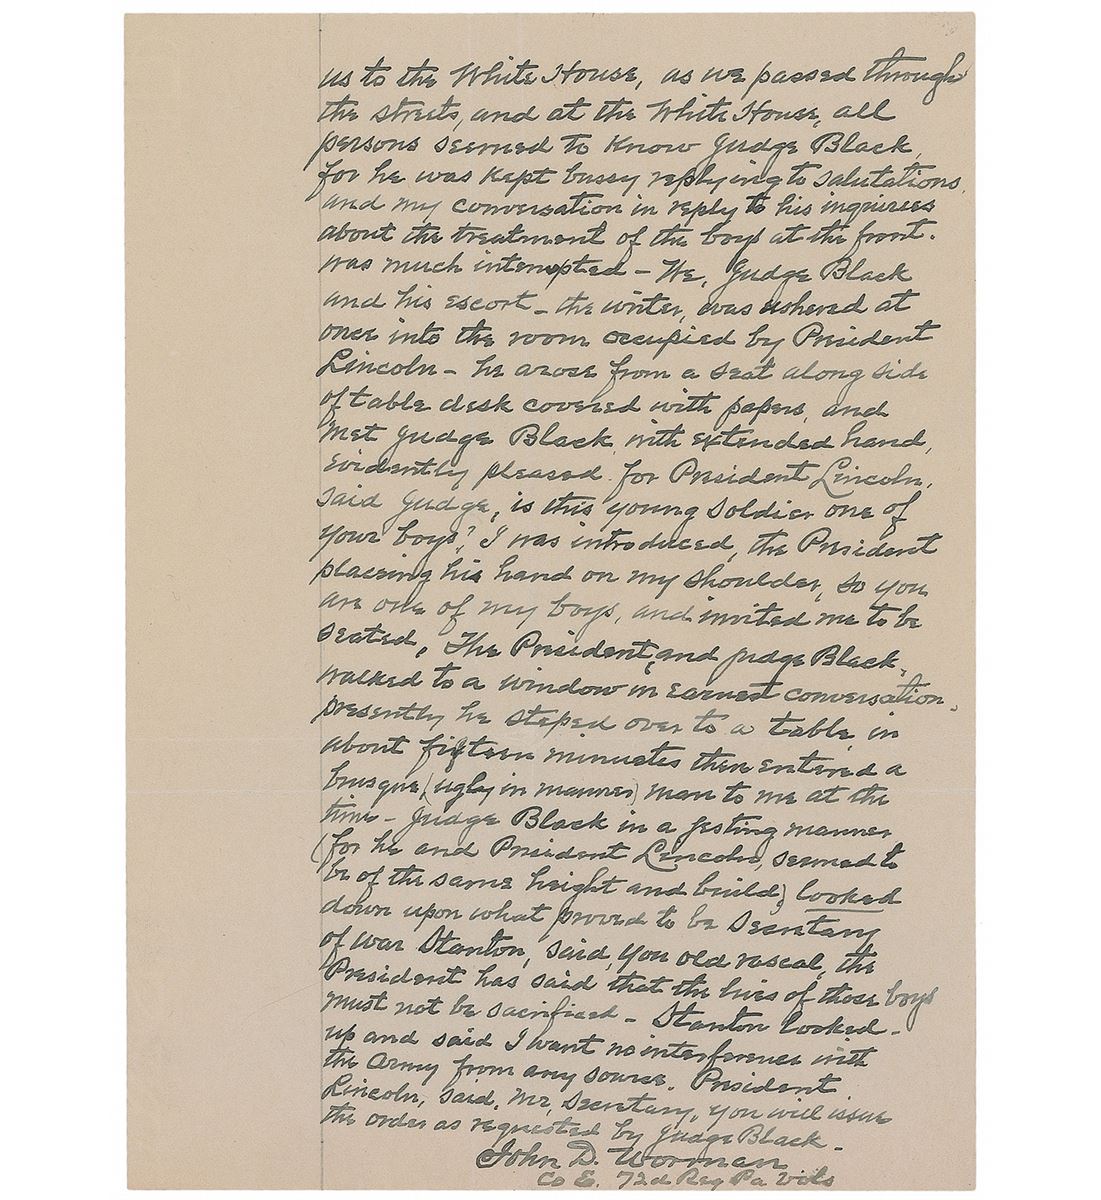 us to the White House, as we passed through
the streets, and at the White House, all
persons seemed to know Judge Black,
for he was kept bussy replying to salutations.
and my conversation in reply to his inquiries
about the treatment of the boys at the front.
was much interupted – We, Judge Black
and his escort – the writer, was ushered at
once into the room occupied by President
Lincoln – he arose from a seat along side
of table desk covered with papers, and
met Judge Black, with extended hand,
evidently pleased. for President Lincoln,
said Judge, is this young soldier one of
your boys? I was introduced, the President
placeing his hand on my shoulder, so you
are one of my boys, and invited me to be
seated, The President, and Judge Black,
walked to a window in earnest conversation.
presently he steped over to a table, in
about fifteen minuetes then entered a
brusque, (ugly in manner) man to me at the
time – Judge Black in a jesting manner
(for he and President Lincoln, seemed to
be of the same height and build) looked
down upon what proved to be Secretary
of war Stanton, said, you old rascal, the
President has said that the lives of those boys
must not be sacrificed – Stanton looked –
up and said I want no interference with
the Army from any source. President
Lincoln, said, Mr, Secretary, you will issue
the order as requested by Judge Black –
John D. Worman
Co E. 72d Reg Pa Vols